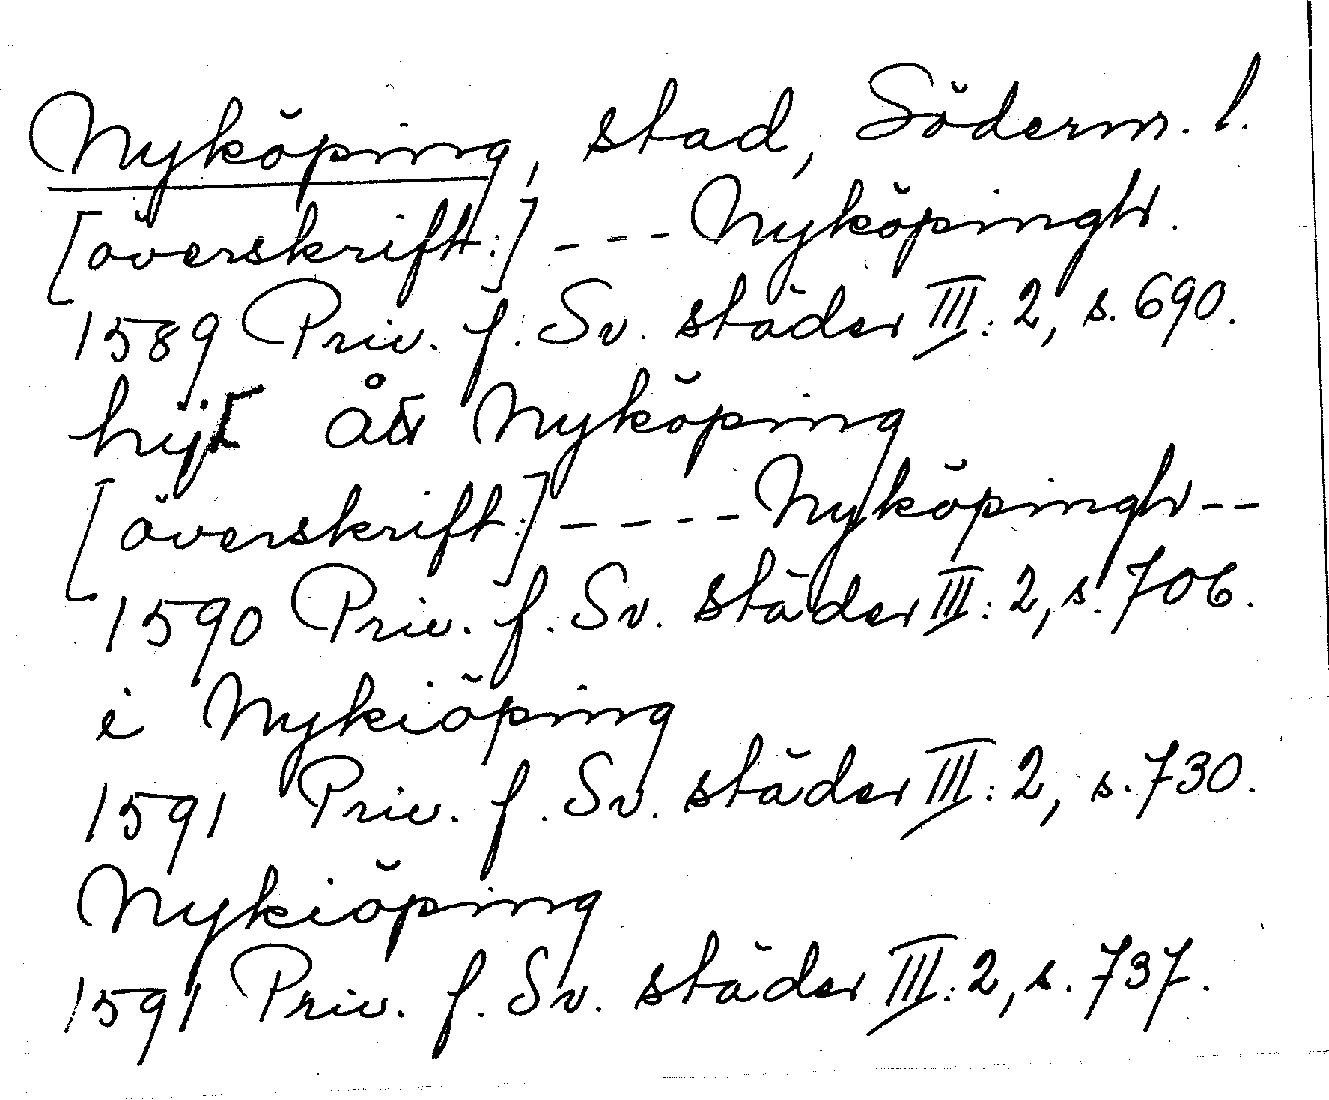 Nyköping, stad, Söderm. l.
[överskrift:] --- Nyköpingh.
1589 Priv. f. Sv. städer III:2, s. 690.
Nyköping
[överskrift:] ---- Nyköpingh --
1590 Priv. f. Sv. städer III:2, s. 706.
i Nykiöping
1591 Priv. f. Sv. städer III:2, s. 730.
Nykiöping
1591 Priv. f. Sv. städer III:2, s. 737.